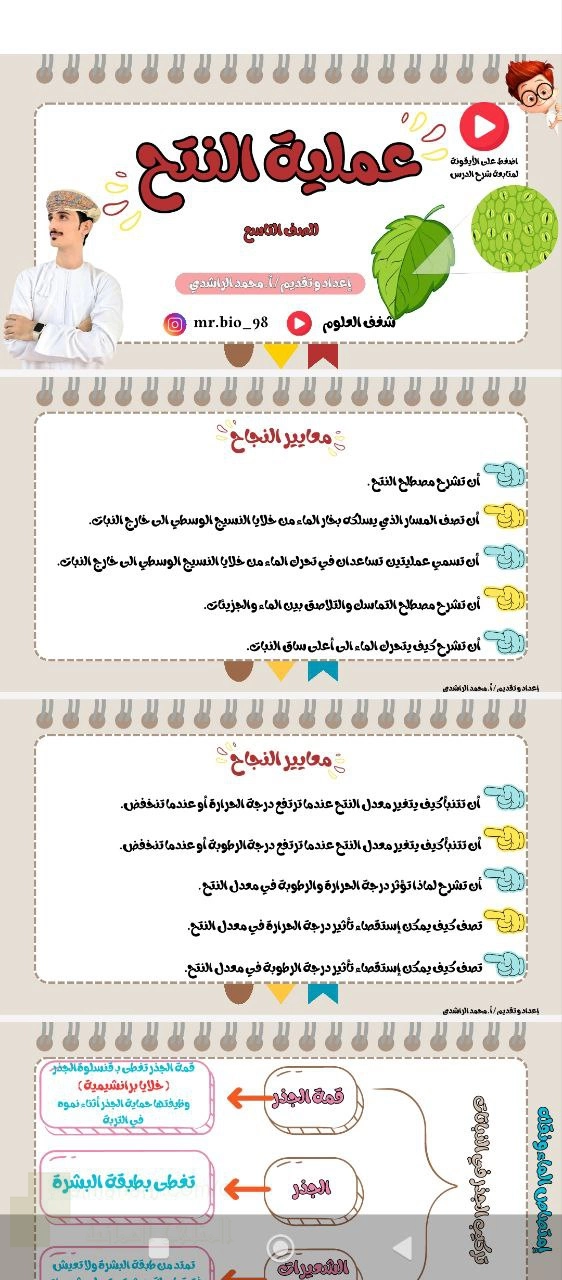 عملية النتح
للصف التاسع
إعداد و تقديم / أ. محمد الراشدي
mr.bio_98
شغف العلوم
اضغط على الأيقونة
لمتابعة شرح الدرس
معايير النجاح
أن تشرح مصطلح النتح .
أن تصف المسار الذي يسلكه بخار الماء من خلايا النسيج الوسطي الى خارج النبات.
أن تسمي عمليتين تساعدان في تحرك الماء من خلايا النسيج الوسطي الى خارج النبات.
أن تشرح مصطلح التماسك والتلاصق بين الماء والجزيئات.
أن تشرح كيف يتحرك الماء الى أعلى ساق النبات.
إعداد و تقديم / أ. محمد الراشدي
معايير النجاح
أن تتنبأ كيف يتغير معدل النتح عندما ترتفع درجة الحرارة أو عندما تنخفض.
أن تتنبأ كيف يتغير معدل النتح عندما ترتفع درجة الرطوبة أو عندما تنخفض.
أن تشرح لماذا تؤثر درجة الحرارة والرطوبة في معدل النتح .
تصف كيف يمكن إستقصاء تأثير درجة الحرارة في معدل النتح.
تصف كيف يمكن إستقصاء تأثير درجة الرطوبة في معدل النتح.
إعداد و تقديم / أ. محمد الراشدي
إمتصاص الماء ونقله
تركيب الجذر في النباتات
قمة الجذر
قمة الجذر تغطى بـ قنسلوة الجذر
( خلايا برانشيمية )
وظيفتها حماية الجذر أثناء نموه
في التربة
الجذر
تغطى بطبقة البشرة
الشعيرات
تمتد من طبقة البشرة ولا تعيش